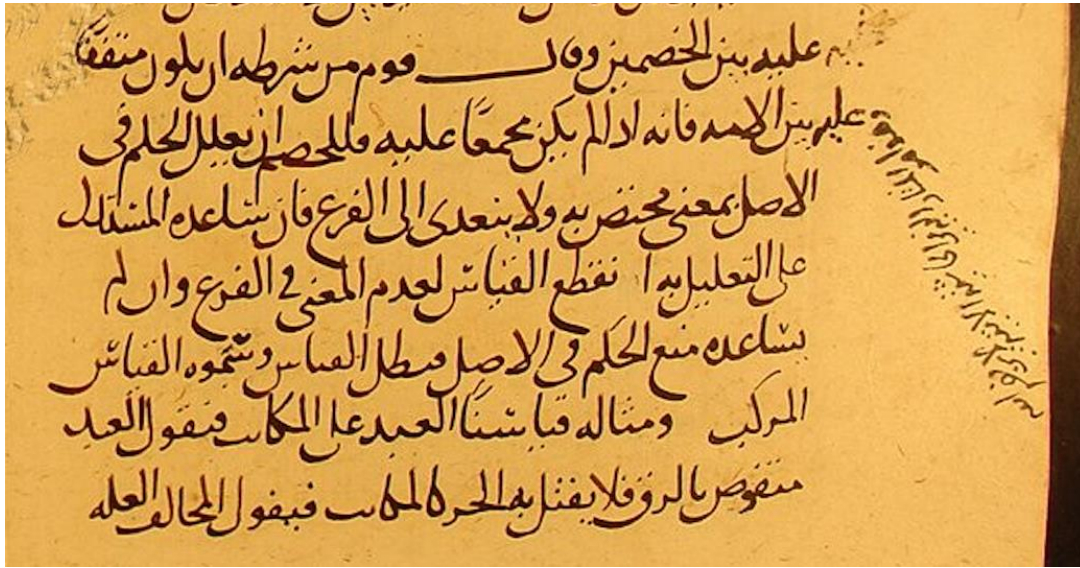 عليه بين الخصمين وقال قوم من شرطه ان يكون متفقا
عليه بين الامه فانه اذا لم يكن مجمعًا عليه فللخصم ان يعلل الحكم في
الاصل بمعنى مختص به ولا يتعدى الى الفرع فان ساعده المستدل
على التعليل به انقطع القياس لعدم المعنى في الفرع وان لم
يساعده منع الحكم في الاصل فبطل القياس وسَمَّوه القياس
المركب ومثاله قياسنا العبد على المكاتب فيقول العبد
منقوص بالرق فلا يقتل به الحر كالمكاتب فيقول المخالف العله